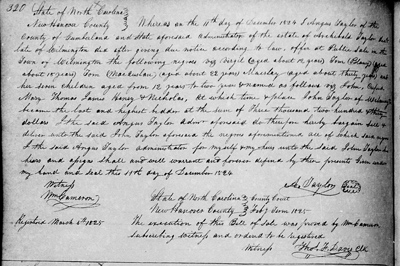 320 State of North Carolina
New Hanover County } Whereas on the 11th day of December 1824 I Angus Taylor of the
County of Cumberland and State aforesaid Administrator of the estate of Archibald Taylor
late of Wilmington did after giving due notice according to law, offer at Public sale in the
Town of Wilmington the following negroes viz Virgil (aged about 18 years) Tom
about 18 years) Tom (aged about 22 years (aged about thirty years) and
her seven children aged from 12 years to two years named as follows viz John,
Mary Thomas James Nancy & Nicholas, At which time & place John Taylor of Wilmington
became the last and highest bidder at the sum of Three Thousand two hundred & thirty
dollars I the said Angus Taylor Admr aforesaid do therefore hereby bargain sell &
deliver unto the said John Taylor aforesaid the negroes aforementioned all of which said
I the said Angus Taylor administrator for myself my heirs unto the said John Taylor his
heirs and assigns shall and will warrant and forever defend by these presents Given under
my hand and seal this 11th day of December 1824
Witness
An Taylor Seal
Wm Cameron
State of North Carolina } County Court
New Hanover County } Feby Term 1825
Registered March 4th 1825
The execution of this Bill of Sale was proved by Wm Cameron
subscribing Witness and ordered to be registered
Witness Thos F. Davis Clk